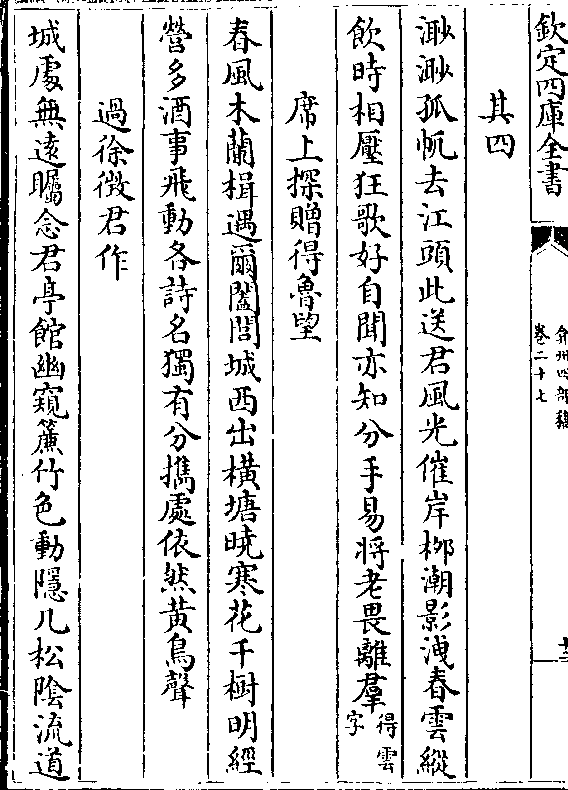 欽定四庫全書
弇州四部稿
卷二十七
其四
渺渺孤帆去江頭此送君風光催岸柳潮影洩春雲縱
飲時相壓狂歌好自聞亦知分手易將老畏離羣得雲
字
席上探贈得魯望
春風木蘭楫遇爾闔閭城西出橫塘曉寒花千樹明經
營多酒事飛動各詩名獨有分攜處依然黃鳥聲
過徐徵君作
城處無遠矚念君亭館幽窺簾竹色動隱几松陰流道